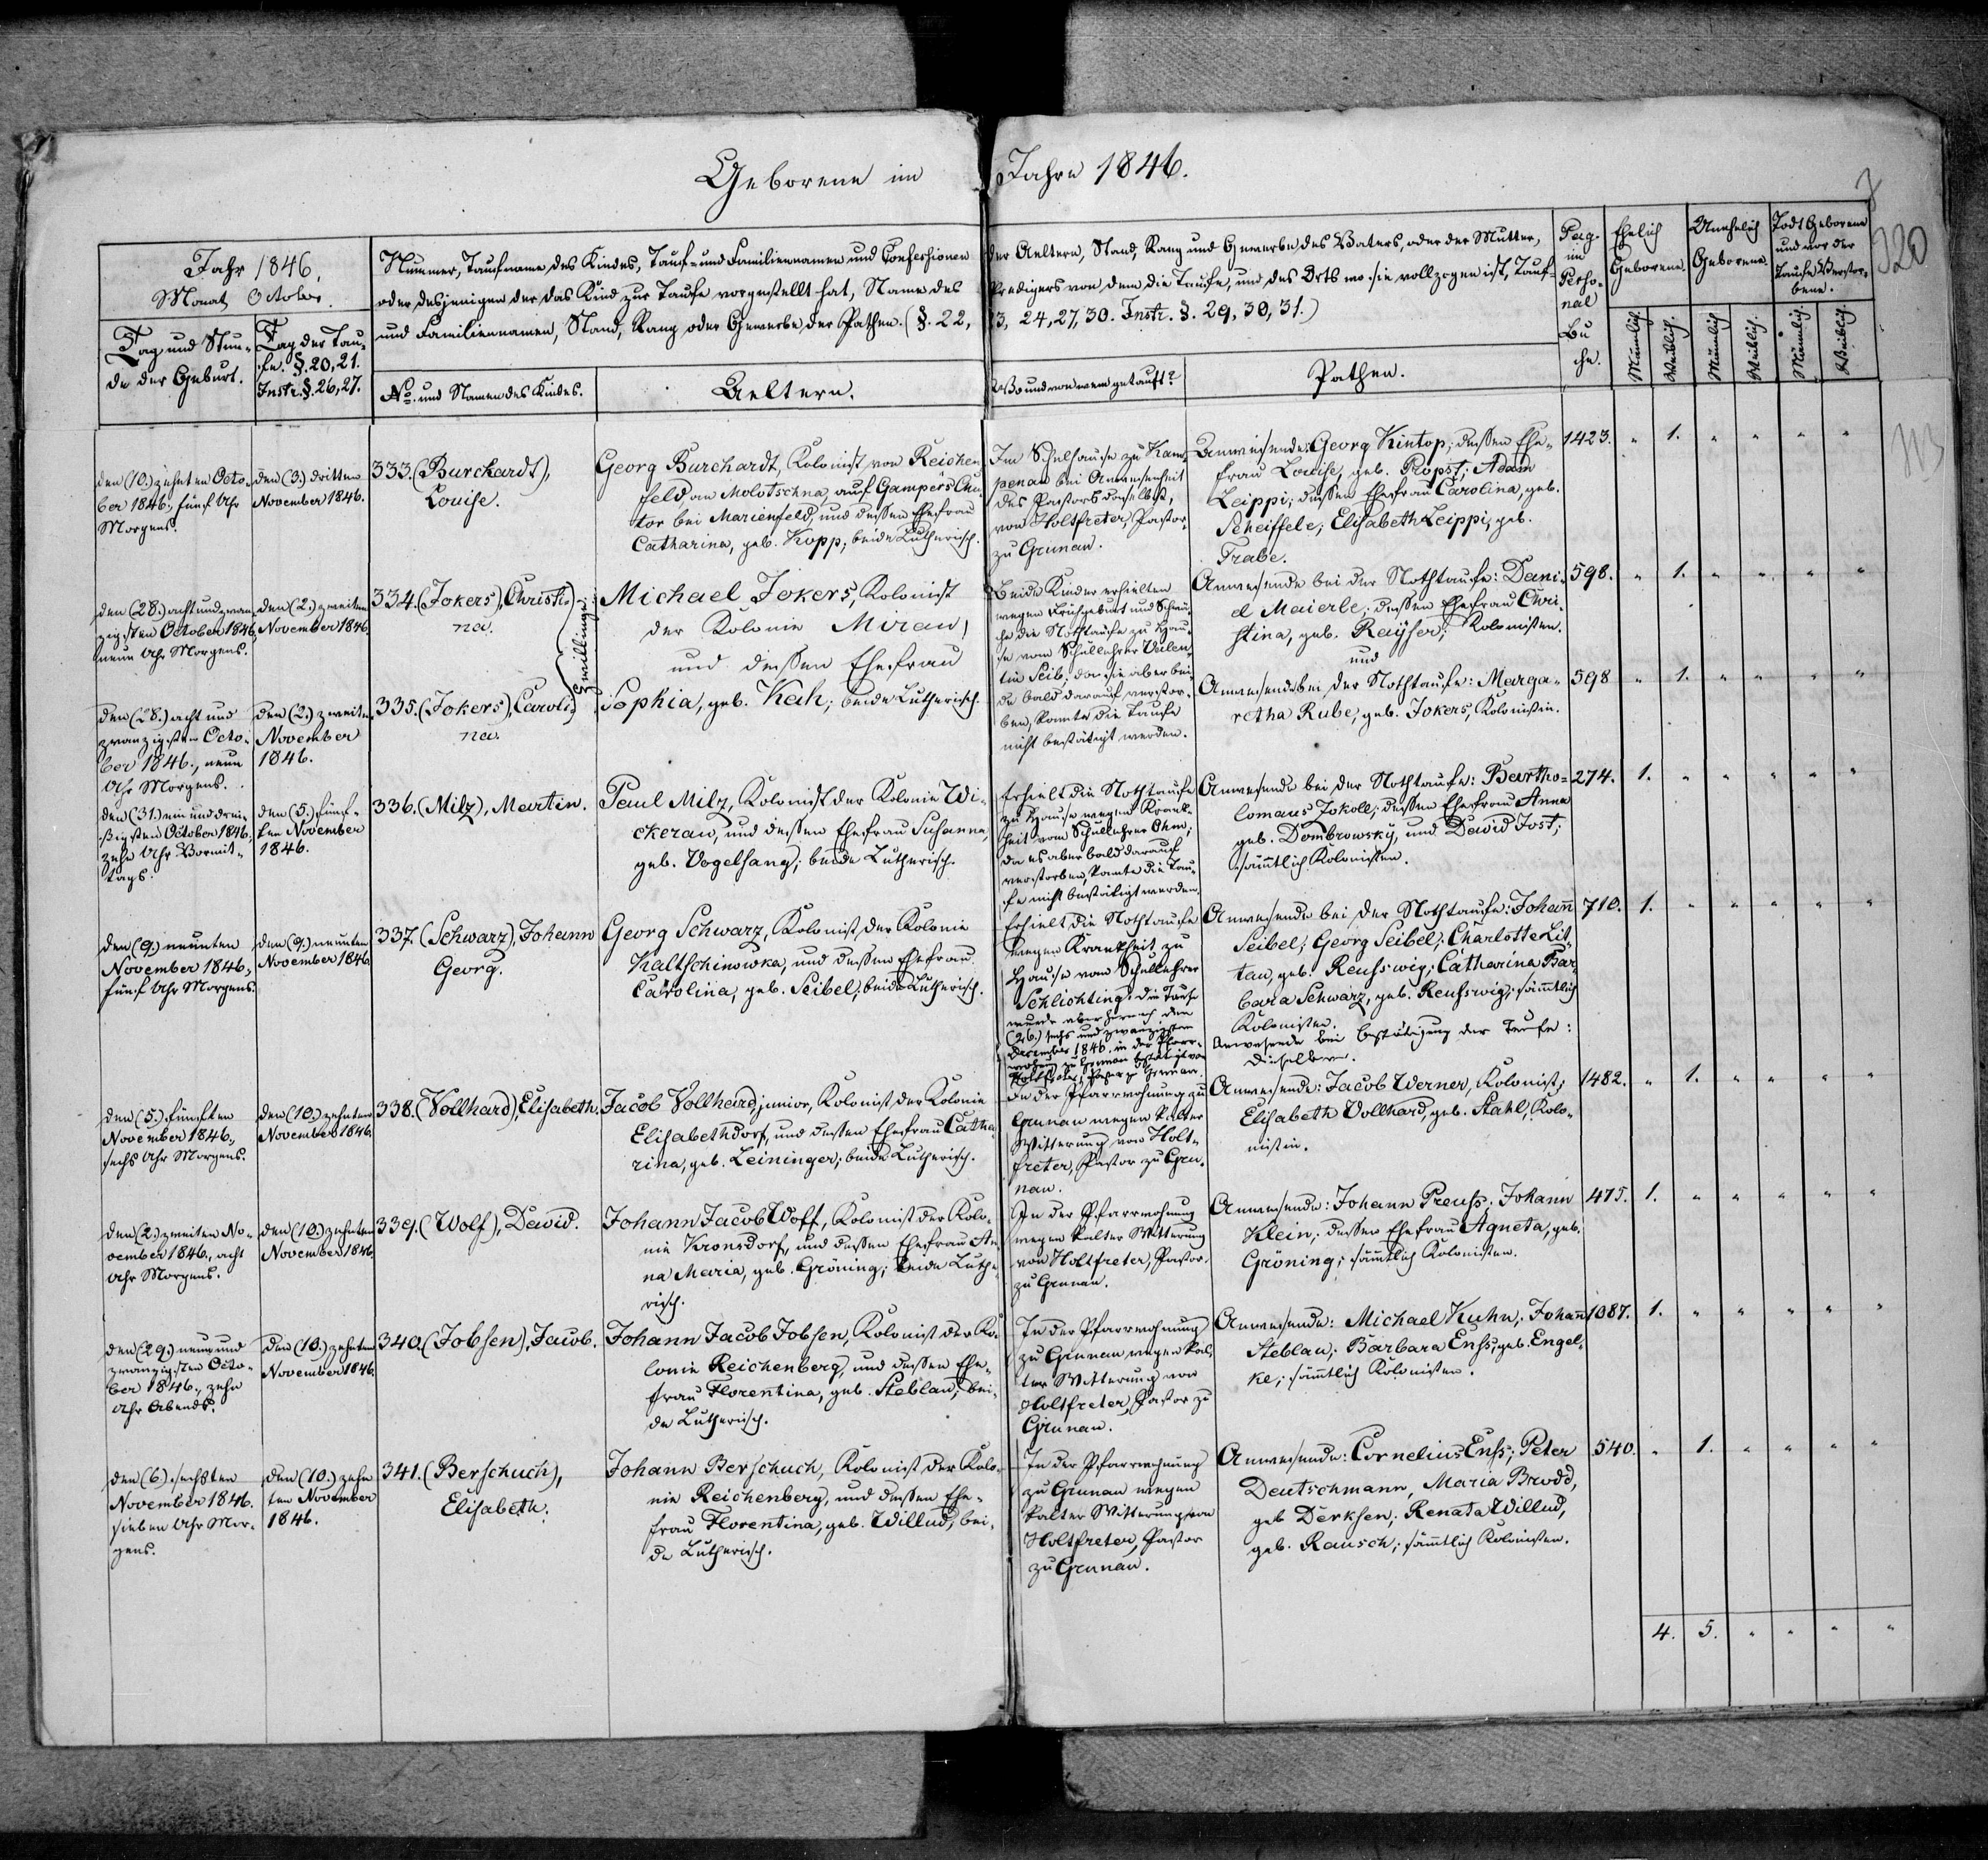 Geborene im Jahre 1846.
320
113
Jahr 1846.
Monat October.
Tag und Stunde der Geburt.
Tag der Taufe. §. 20, 21. Instr. §. 26, 27.
Nummer, Taufname des Kindes, Tauf- und Familiennamen und Confessionen der Aeltern, Stand, Rang und Gewerbe des Vaters, oder der Mutter,
oder desjenigen der das Kind zur Taufe vorgestellt hat, Name des Predigers von dem die Taufe, und des Orts wo sie vollzogen ist, Tauf-
und Familiennamen, Stand, Rang oder Gewerbe der Pathen. (§. 22, 23, 24, 27, 30. Instr. §. 29, 30, 31.)
No. und Namen des Kindes.
Aeltern.
Wo und von wem getauft?
Pathen.
Pag. im Perso-nal Bu-che.
Ehelich Geborene.
Unehelich Geborene.
Todt Geborene und vor der Taufe Verstorbene.
Männlich.
Weiblich.
Männlich.
Weiblich.
Männlich.
Weiblich.
den (10.) zehnten Octo-
ber 1846., fünf Uhr
Morgens.
den (3.) dritten
November 1846.
333. (Burchardt),
Louise.
Georg Burchardt, Kolonist von Reichen-
feld an Molotschna auf Gampers Chu-
tor bei Marienfeld, und dessen Ehefrau
Catharina, geb. Kopp; beide Lutherisch.
Im Schulhause zu Kam-
penau bei Anwesenheit
des Pastors daselbst,
von Holtfreter, Pastor
zu Grunau.
Anwesende: Georg Kintop; dessen Ehe-
frau Louise, geb. Propst; Adam
Leippi; dessen Ehefrau Carolina, geb.
Scheiffele; Elisabeth Leippi, geb.
Trabe.
1423. " 1. " " " "
den (28.) acht und zwan-
zigsten October 1846.
neun Uhr Morgens.
den (2.) zweiten
November 1846.
334. (Jokers), Christi-
na.
Zwillinge.
Michael Jokers, Kolonist
der Kolonie Mirau,
und dessen Ehefrau
Sophia, geb. Kah; beide Lutherisch.
Beide Kinder erhielten
wegen Frühgeburt und Schwä-
che die Nothtaufe zu Hau-
se vom Schullehrer Valen-
tin Seib; da sie aber bei-
de bald darauf verstor-
ben, konnte die Taufe
nicht bestätigt werden.
Anwesende bei der Nothtaufe: Dani-
el Maierle; dessen Ehefrau Chri-
stina, geb. Rayser; Kolonisten.
und
598. " 1. " " " "
den (28.) acht und
zwanzigsten Octo-
ber 1846., neun
Uhr Morgens.
den (2.) zweiten
November
1846.
335. (Jokers), Caroli-
na.
Anwesende bei der Nothtaufe: Marga-
retha Rube, geb. Jokers, Kolonistin.
598 " 1. " " " "
den (31.) ein und drei-
ßigsten October 1846,
zehn Uhr Vormit-
tags.
den (5.) fünf-
ten November
1846.
336. (Milz), Martin.
Paul Milz, Kolonist der Kolonie Wi-
ckerau, und dessen Ehefrau Susanna,
geb. Vogelsang; beide Lutherisch.
Erhielt die Nothtaufe
zu Hause wegen Krank-
heit vom Schullehrer Ohm;
da es aber bald darauf
verstorben, konnte die Tau-
fe nicht bestätigt werden.
Anwesende bei der Nothtaufe: Bartho-
lomaus Jokoll; dessen Ehefrau Anna
geb. Dombrowsky, und David Jost;
sämtlich Kolonisten.
274. 1. " " " " "
den (9.) neunten
November 1846,
fünf Uhr Morgens.
den (9.) neunten
November 1846.
337. (Schwarz), Johann
Georg.
Georg Schwarz, Kolonist der Kolonie
Kaltschinowka, und dessen Ehefrau
Carolina, geb. Seibel; beide Lutherisch.
Erhielt die Nothtaufe
wegen Krankheit zu
Hause vom Schullehrer
Schlichting; die Taufe
wurde aber hernach den
(26.) sechs und zwanzigsten
December 1846. in der Pfarr-
wohnung zu Grunau bestätigt von
Holtfreter, Pastor zu Grunau.
Anwesende bei der Nothtaufe: Johann
Seibel; Georg Seibel; Charlotte Lit-
tau, geb. Reusswig; Catharina Bar-
bara Schwarz, geb. Reusswig; sämtlich
Kolonisten.
Anwesende bei Bestätigung der Taufe:
Dieselben.
710. 1. " " " " "
den (5.) fünften
November 1846.,
sechs Uhr Morgens.
den (10.) zehnten
November 1846.
338. (Vollhard), Elisabeth.
Jacob Vollhard, junior, Kolonist der Kolonie
Elisabethdorf, und dessen Ehefrau Catha-
rina, geb. Leininger; beide Lutherisch.
In der Pfarrwohnung zu
Grunau wegen kalter
Witterung von Holt-
freter, Pastor zu Gru-
nau.
Anwesende: Jacob Werner, Kolonist;
Elisabeth Vollhard, geb. Stahl, Kolo-
nistin.
1482. " 1. " " " "
den (2.) zweiten No-
vember 1846., acht
Uhr Morgens.
den (10.) zehnten
November 1846.
339. (Wolf), David.
Johann Jacob Wolf, Kolonist der Kolo-
nie Kronsdorf, und dessen Ehefrau An-
na Maria, geb. Gröning; beide Luthe-
risch.
In der Pfarrwohnung
wegen kalter Witterung
von Holtfreter, Pastor
zu Grunau.
Anwesende: Johann Preuss; Johann
Klein; dessen Ehefrau Agneta, geb.
Gröning; sämtlich Kolonisten.
475. 1. " " " " "
den (29.) neun und
zwanzigsten Octo-
ber 1846., zehn
Uhr Abends.
den (10.) zehnten
November 1846.
340. (Jobsen), Jacob.
Johann Jacob Jobsen, Kolonist der Ko-
lonie Reichenberg, und dessen Ehe-
frau Florentina, geb. Steblau; bei-
de Lutherisch.
In der Pfarrwohnung
zu Grunau wegen kal-
ter Witterung von
Holtfreter, Pastor zu
Grunau.
Anwesende: Michael Kuhn; Johann
Steblau; Barbara Enss, geb. Engel-
ke; sämtlich Kolonisten.
1087. 1. " " " " "
den (6.) sechsten
November 1846.
sieben Uhr Mor-
gens.
den (10.) zehn
ten November
1846.
341. (Berschuch),
Elisabeth.
Johann Berschuch, Kolonist der Kolo-
nie Reichenberg, und dessen Ehe-
frau Florentina, geb. Willud; bei-
de Lutherisch.
In der Pfarrwohnung
zu Grunau wegen
kalter Witterung von
Holtfreter, Pastor
zu Grunau.
Anwesende: Cornelius Enss; Peter
Deutschmann, Maria Brodd,
geb Derksen; Renata Willud,
geb. Rausch; sämtlich Kolonisten.
540. " 1. " " " "
4. 5. " " " "